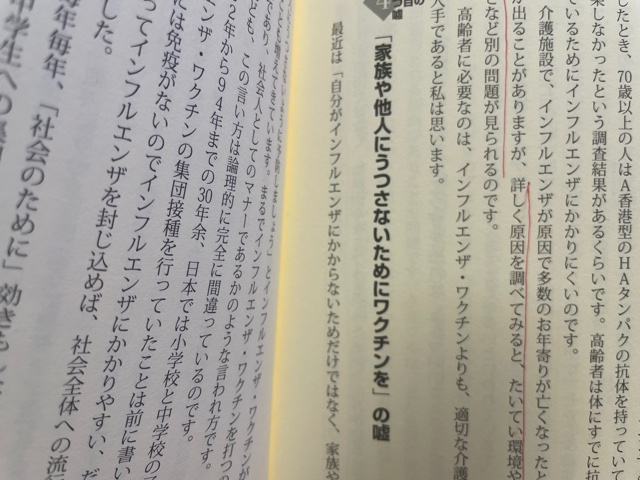 したとき、70歳以上の人はA香港型のHAタンパクの抗体を持ってい
果しなかったという調査結果があるくらいです。高齢者は体にすでに抗
ているためにインフルエンザにかかりにくいのです。
介護施設で、インフルエンザが原因で多数のお年寄りが亡くなったと
が出ることがありますが、詳しく原因を調べてみると、たいてい環境や
など別の問題が見られるのです。
高齢者に必要なのは、インフルエンザ・ワクチンよりも、適切な介護
大手であると私は思います。
の
目
つ嘘
4
「家族や他人にうつさないためにワクチンを」の嘘
最近は「自分がインフルエンザにかからないためだけではなく、家族や
うつさないように予防しましょう」とインフルエンザ・ワクチンが
も増えてきています。まるでインフルエンザ・ワクチンを打つの
であり、社会人としてのマナーであるかのような言われ方です。
も、この言い方は論理的に完全に間違っているのです。
2年から94年までの30年余、日本では小学校と中学校の
エンザ・ワクチンの集団接種を行っていたことは前に書い
には免疫がないのでインフルエンザにかかりやすい、だ
ってインフルエンザを封じ込めば、社会全体への流行
した。
毎年毎年、「社会のために」効きもし
中学生への集